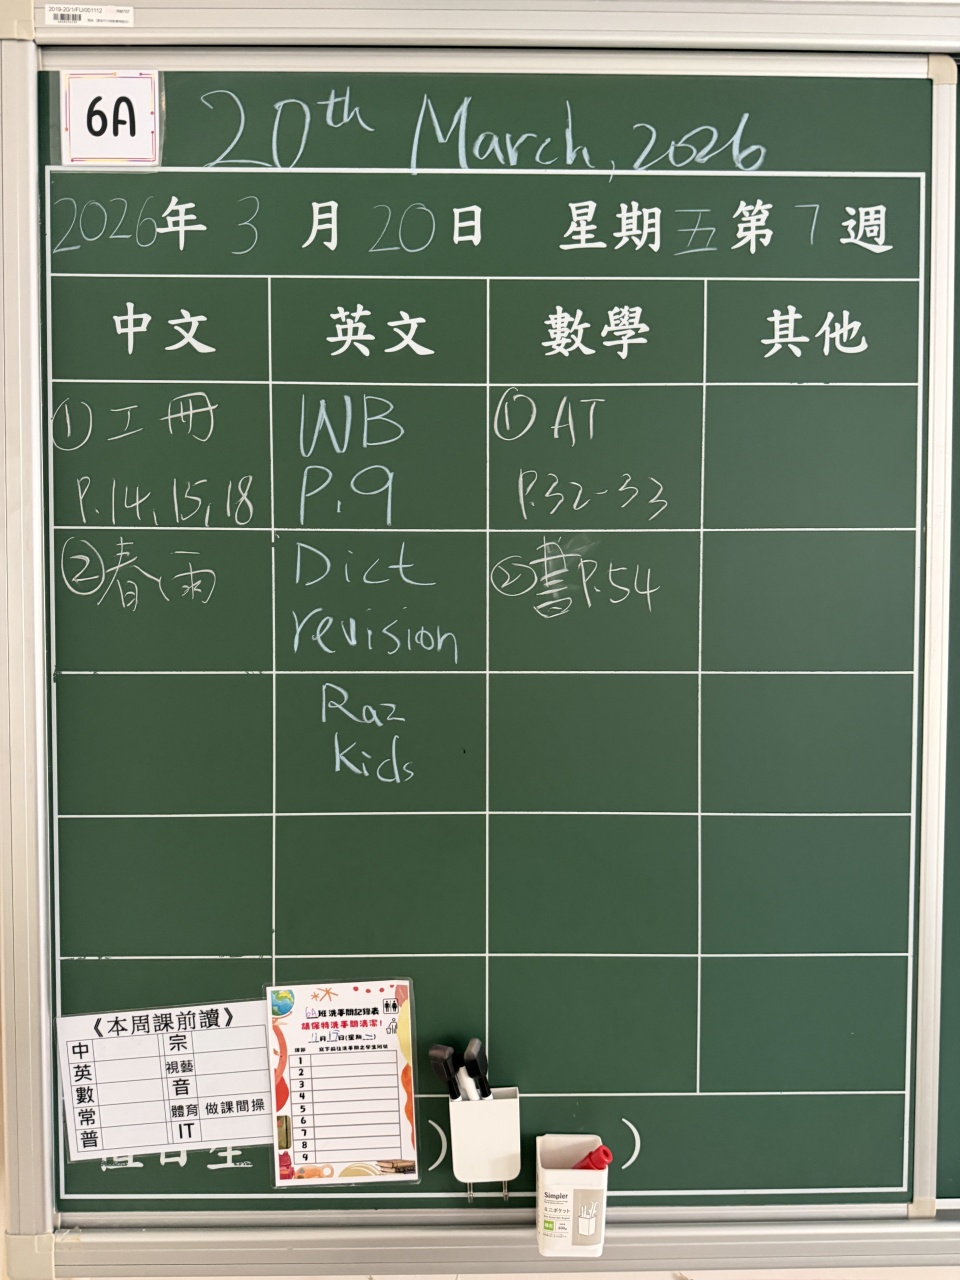 2019-20/1/FU/001112
6A
20th March, 2026
2026年 3 月 20 日 星期 五 第 7 週
中文 英文 數學 其他
① 工冊
P.14, 15, 18
WB
P.9
① AT
P.32-33
② 春雨
Dict
revision
② 書P.54
Raz
Kids
《本周課前讀》
中 宗
英 視藝
數 音
常 體育 做課間操
普 IT
6A班洗手間記錄表
請保持洗手間清潔！
月 日(星期 )
課節
1
2
3
4
5
6
7
8
9
)
)
Simpler
ミニポケット